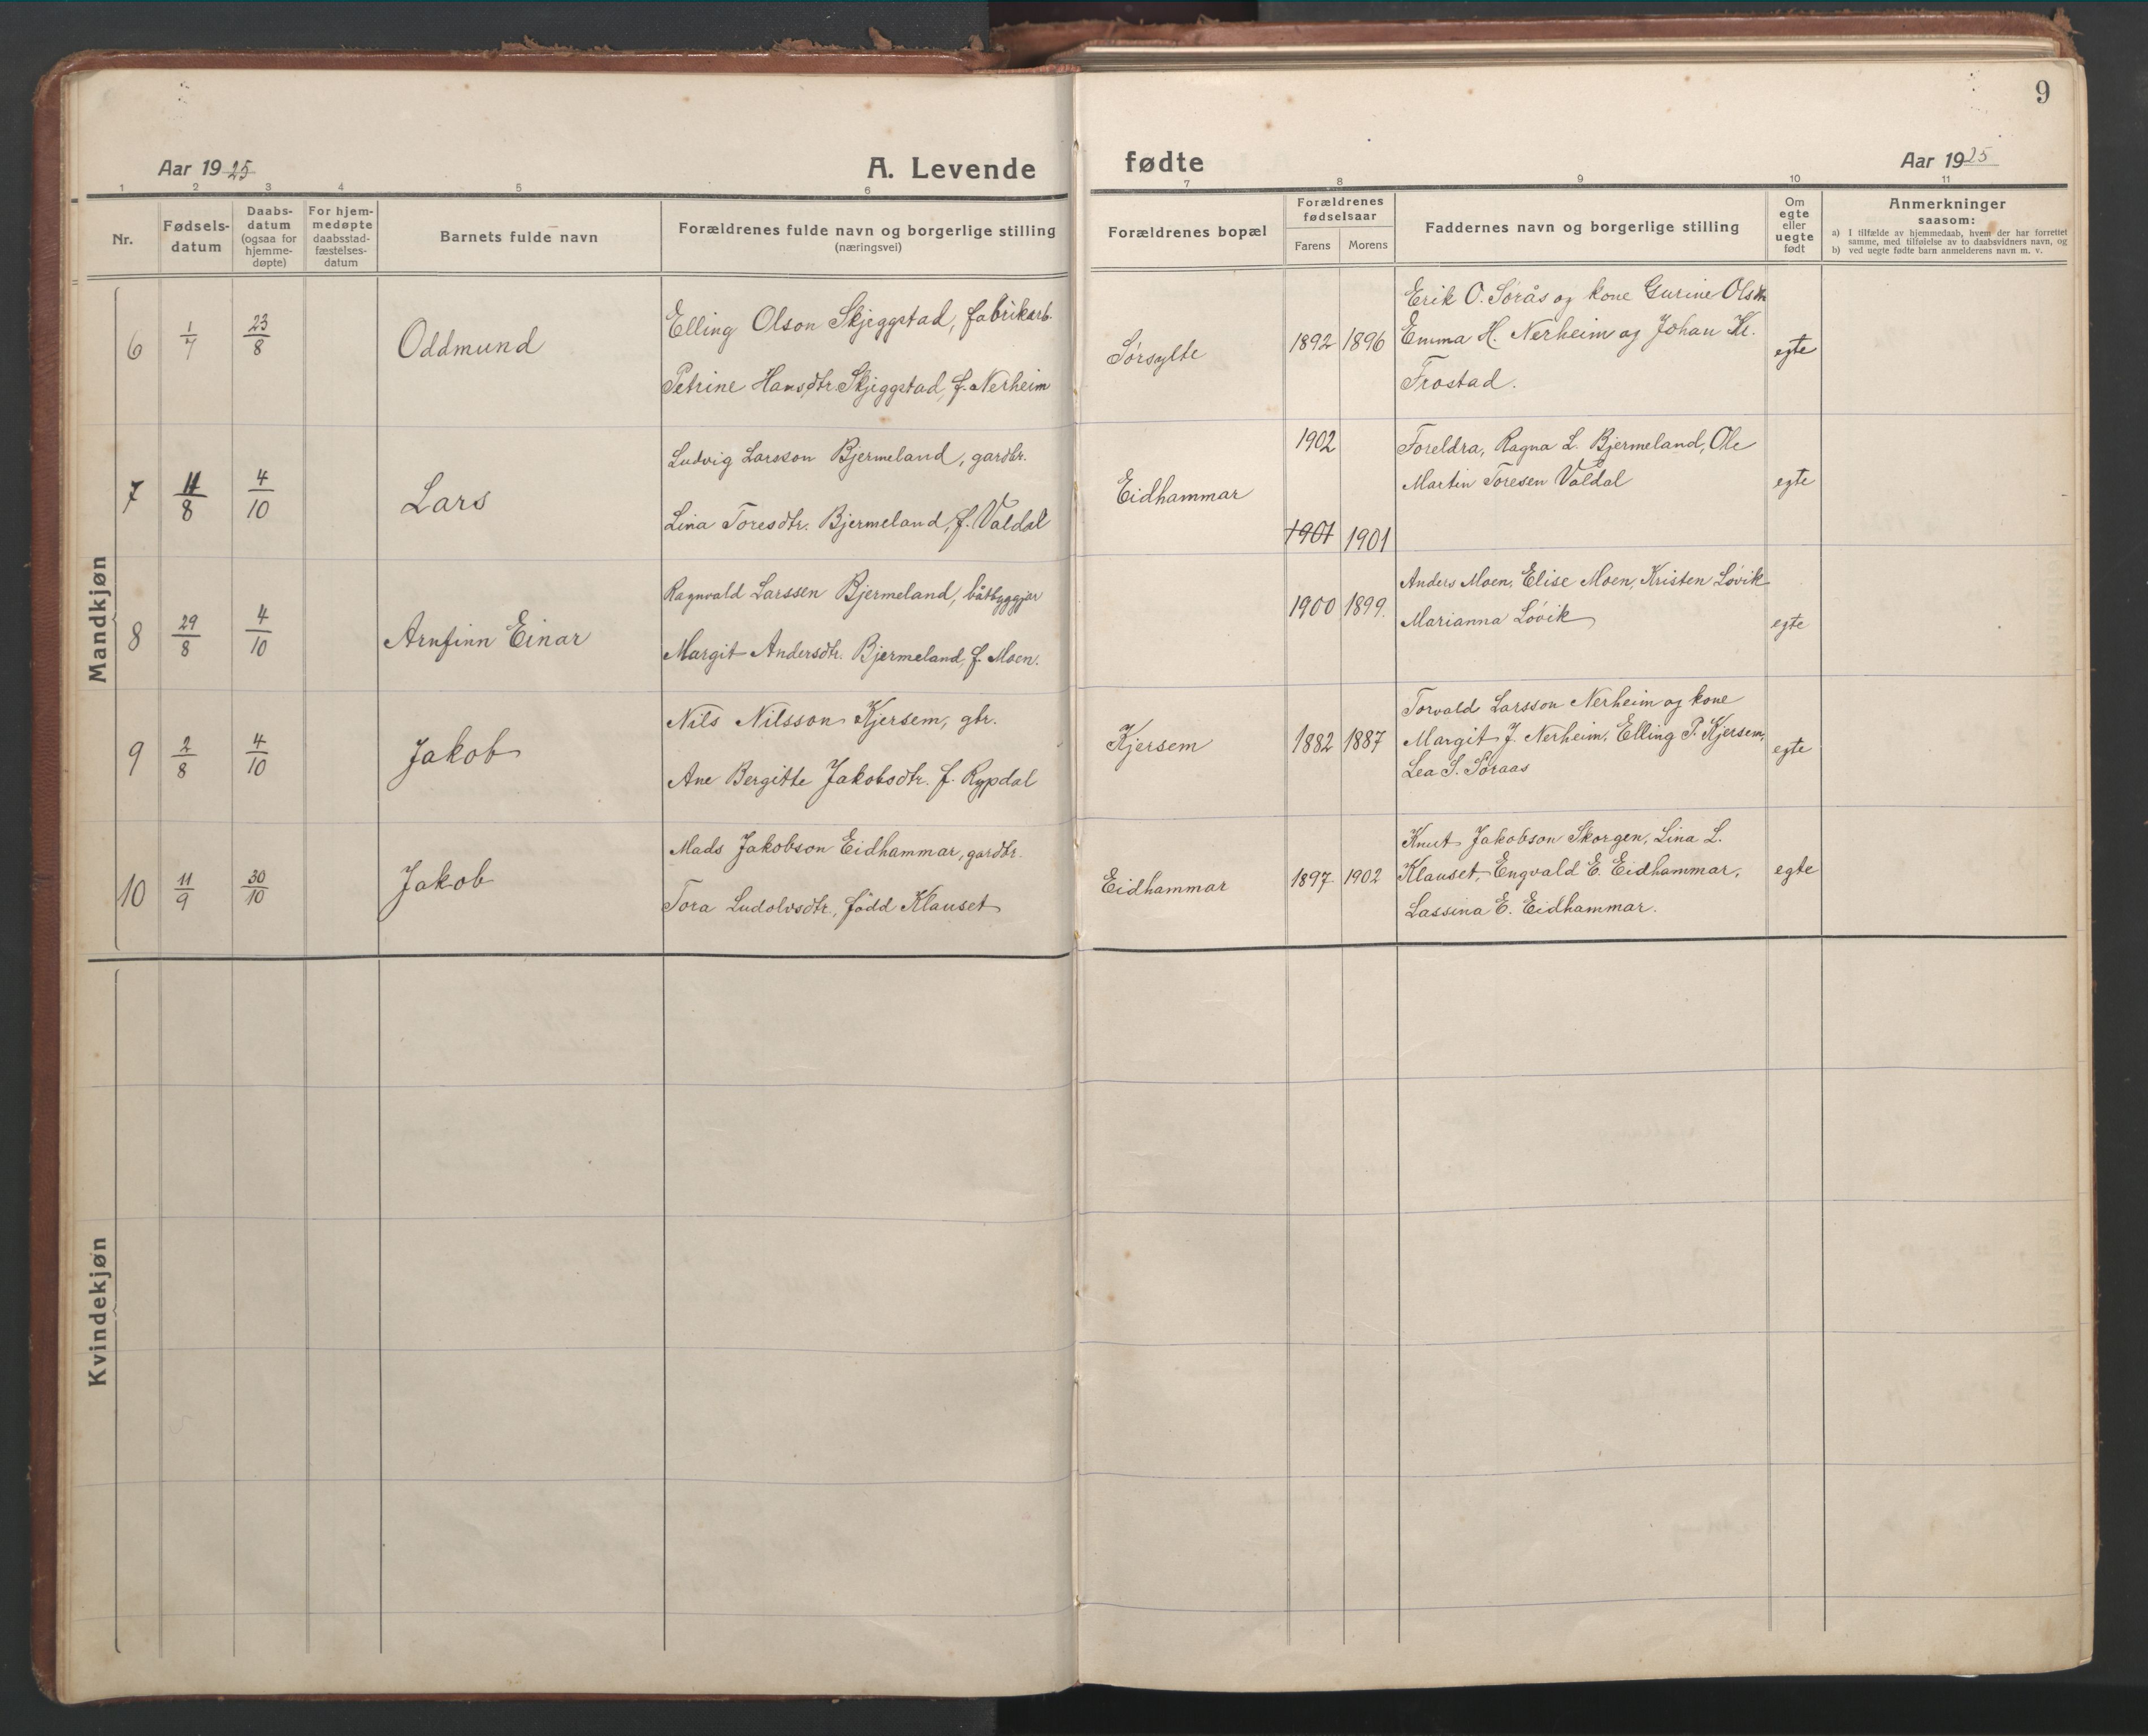 9
Aar 1925
A. Levende
fødte
Aar 1925
1 2 3 4 5 6 7 8 9 10 11
Nr.
Fødsels-
datum
Daabs-
datum
(ogsaa for
hjemme-
døpte)
For hjem-
medøpte
daabsstad-
fæstelses-
datum
Barnets fulde navn
Forældrenes fulde navn og borgerlige stilling
(næringsvei)
Forældrenes bopæl
Forældrenes
fødselsaar
Farens Morens
Faddernes navn og borgerlige stilling
Om
egte
eller
uegte
født
Anmerkninger
saasom:
a) I tilfælde av hjemmedaab, hvem der har forrettet
samme, med tilføielse av to daabsvidners navn, og
b) ved uegte fødte barn anmelderens navn m. v.
Mandkjøn
6 1/7 23/8 Oddmund
Elling Olson Skjeggstad, fabrikarb.
Petrine Hansdtr. Skjeggstad, f. Nerheim
Sørsylte 1892 1896
Erik O. Sørås og kone Gurine Olsdtr.
Emma H. Nerheim og Johan Kr.
Frostad.
egte
7 11/8 4/10 Lars
Ludvig Larsson Bjermeland, gardbr.
Lina Toresdtr. Bjermeland, f. Valdal
Eidhammar
1902
1901 1901
Foreldra, Ragna L. Bjermeland, Ole
Martin Toresen Valdal
egte
8 29/8 4/10 Arnfinn Einar
Ragnvald Larssen Bjermeland, båtbyggjar
Margit Andersdtr. Bjermeland, f. Moen.
1900 1899.
Anders Moen, Elise Moen, Kristen Løvik
Marianna Løvik
egte
9 2/8 4/10 Jakob
Nils Nilsson Kjersem, gbr.
Ane Bergitte Jakobsdtr. f. Rypdal
Kjersem 1882 1887
Torvald Larsson Nerheim og kone
Margit J. Nerheim, Elling P. Kjersem,
Lea S. Søraas
egte
10 11/9 30/10 Jakob
Mads Jakobson Eidhammar, gardbr.
Tora Ludolvsdtr., född Klauset
Eidhammar 1897. 1902
Knut Jakobson Skorgen, Lina L.
Klauset, Engvald E. Eidhammar,
Lassina E. Eidhammar.
egte
Kvindekjøn